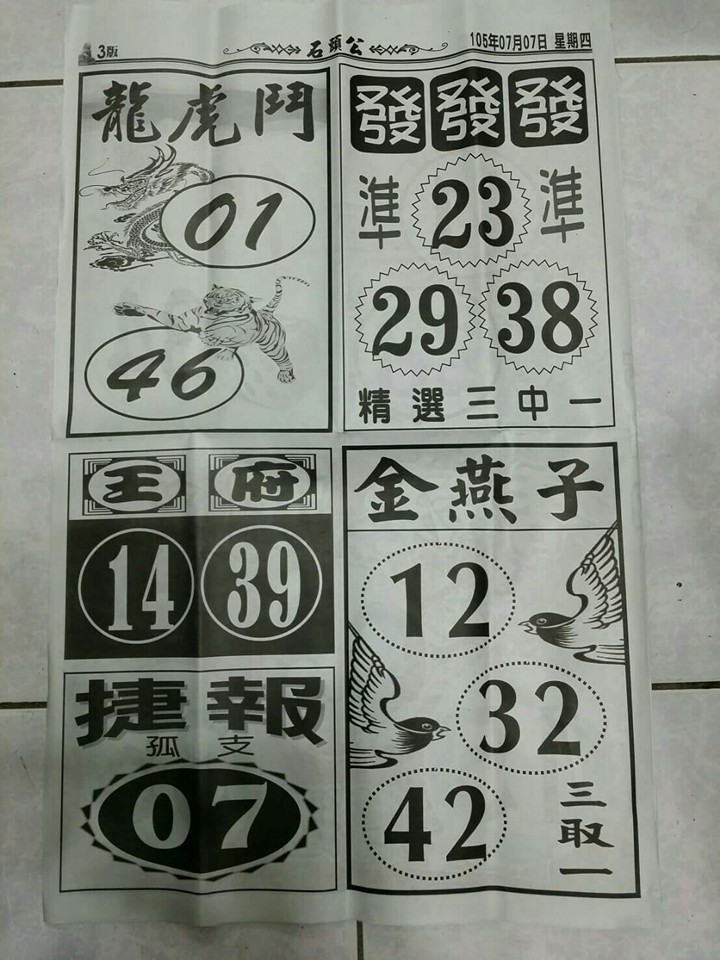 3版
石頭公
105年07月07日 星期四
龍虎鬥
01
46
發發發
準 23 準
29 38
精選三中一
王府
14 39
捷報
孤支
07
金燕子
12
32
42
三取一